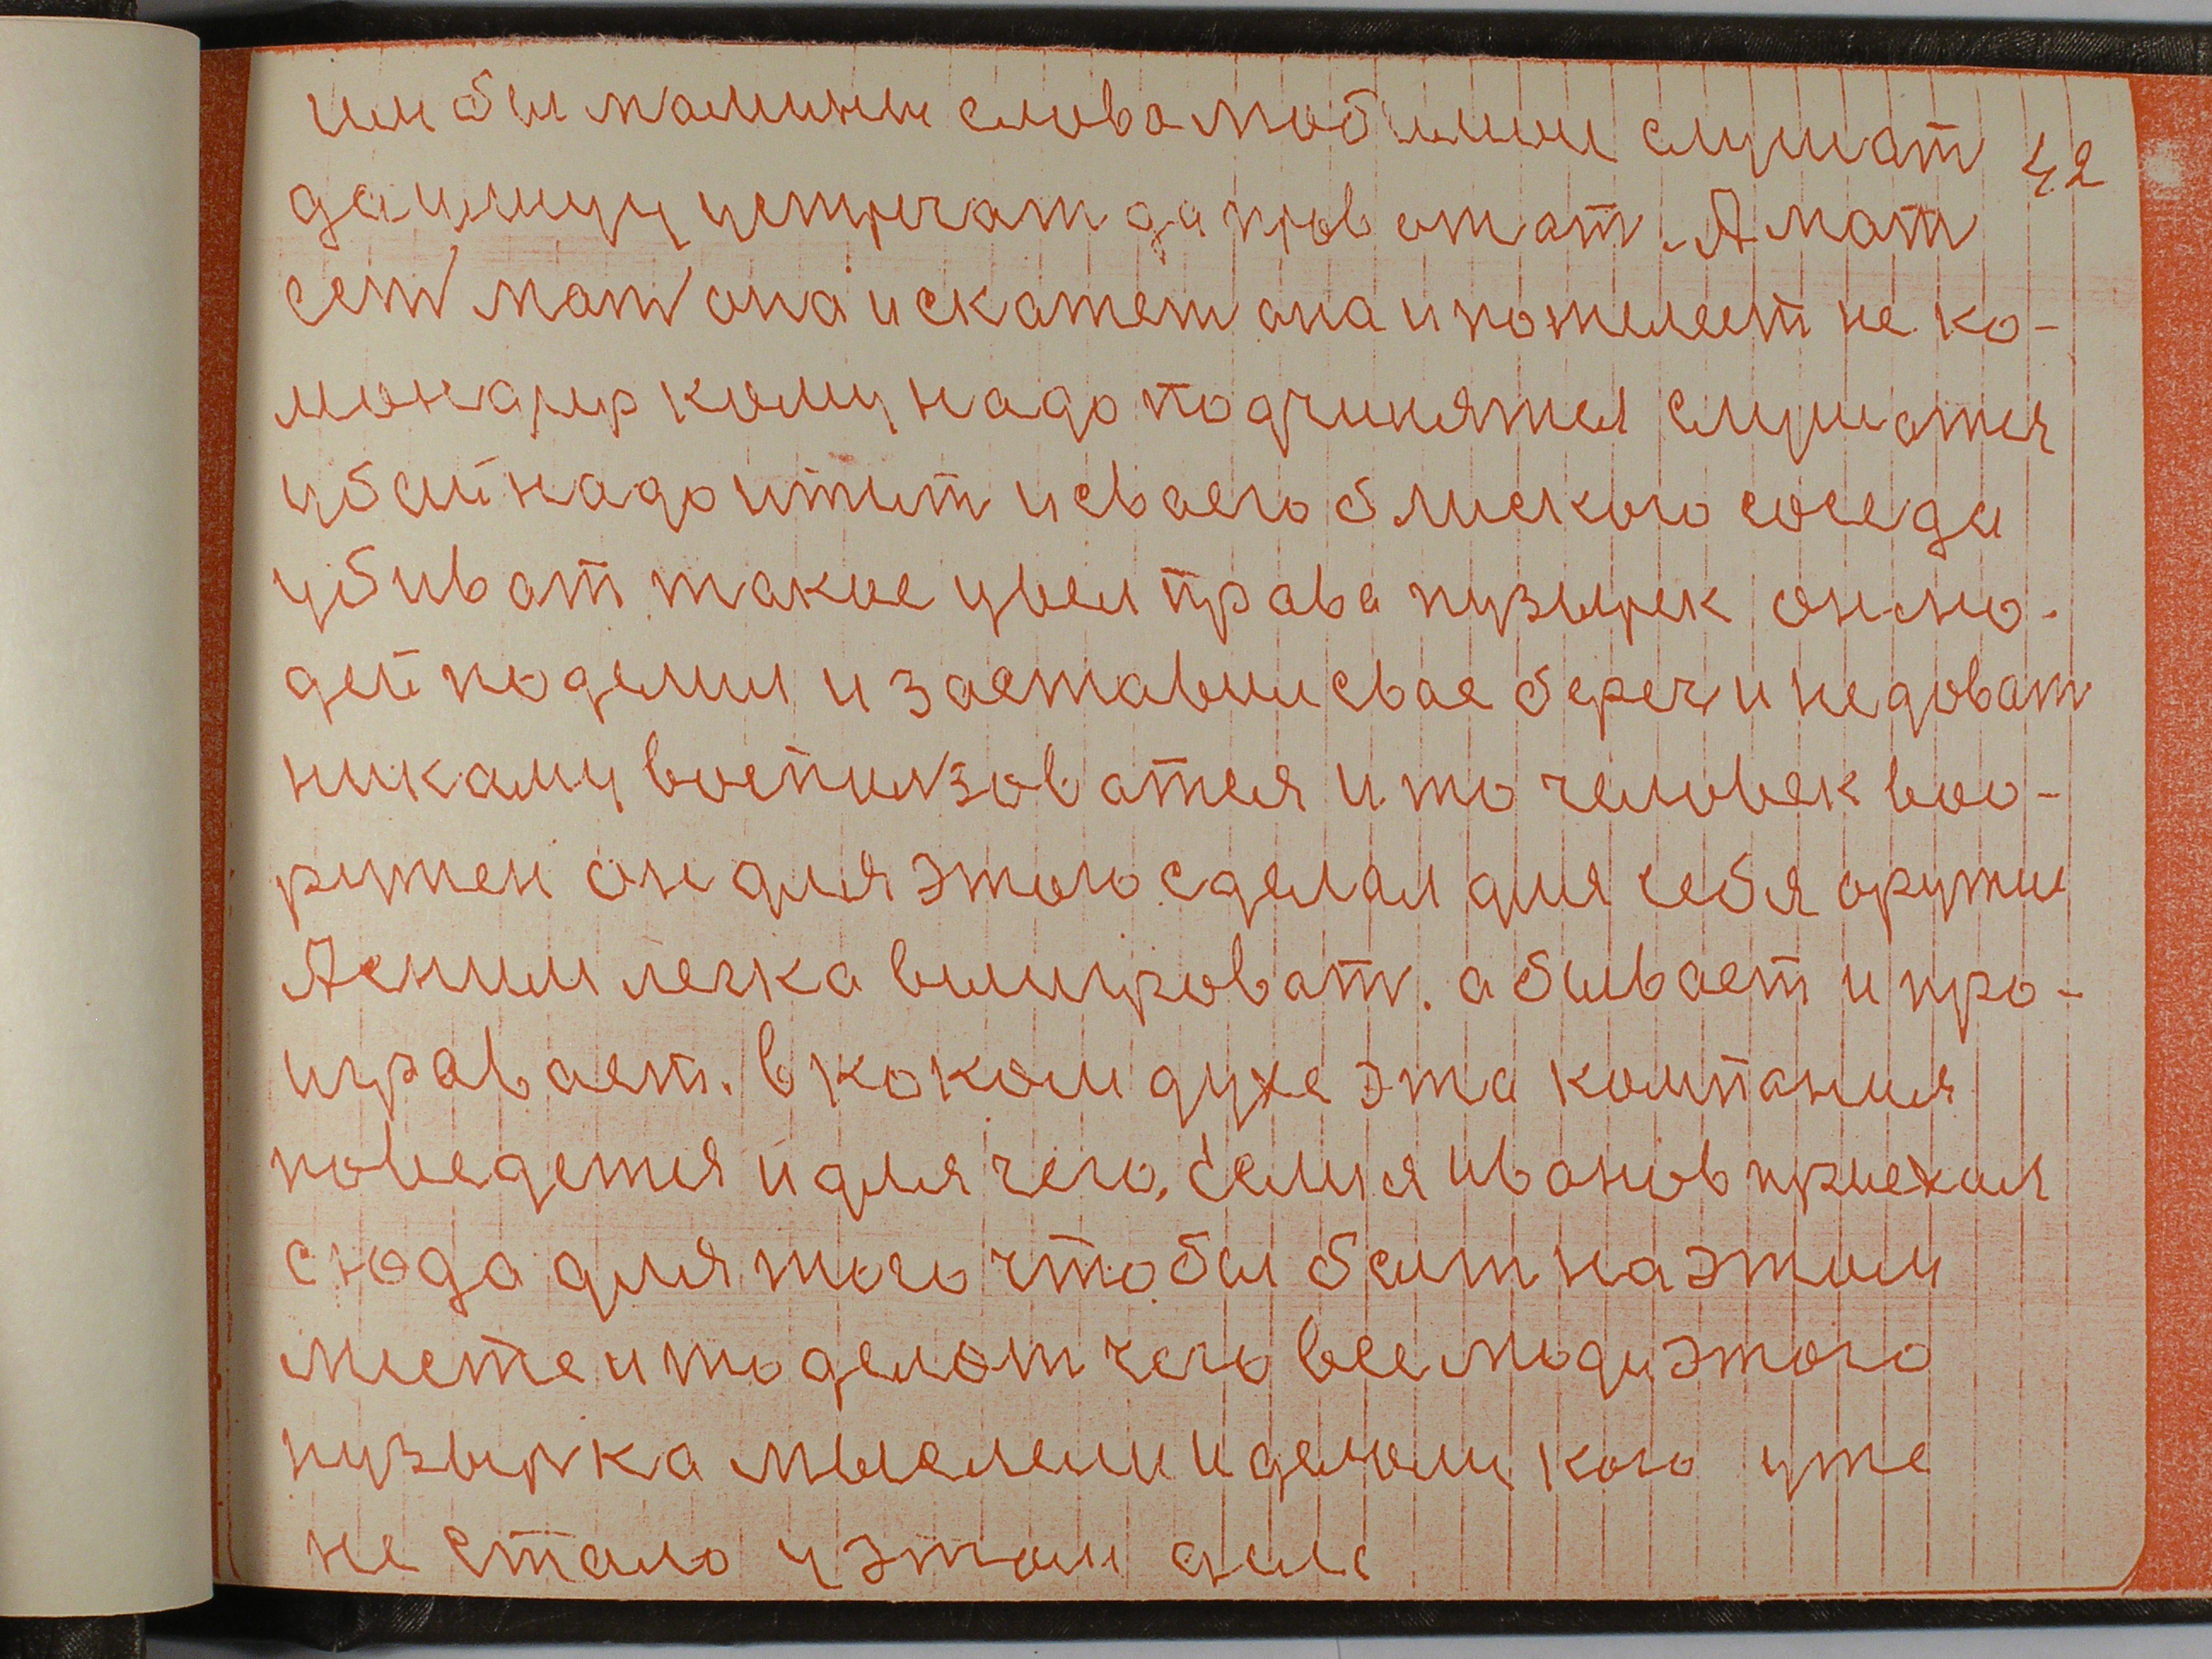 им бы мамины слова любили слушат 42
да улицу устречат да провожат. А мат
ест мат она и скажет она и пожелеет не ко-
мондир кому надо подчинятся слушатся
убай надо итит и сваего блиского соседа
убиват такие увсех права пузырек он лю-
дей поделил и заставил свае береч и недоват
никаму воспилзоватся и то человек воо-
ружен он для этого сделал для себя оружие
А сним легка виигроват. а бывает и про-
игравает. в коком духе эта компания
поведется и для чего. Семия ивонов приехал
сюда для того чтобы быт на этом
месте и то делат чего все люди этого
пузырка мыслели и делоли кого уже
не стало у этом деле